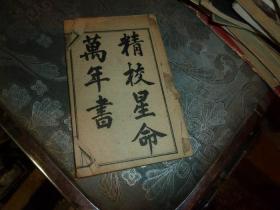 精校星命
萬年書